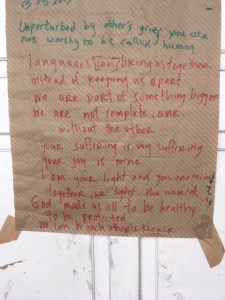 Unperturbed by other's grief you are
not worthy to be called human
languages can bring us together
instead of keeping us apart
we are part of something bigger
we are not complete, one
without the other
your suffering is my suffering
your joy is mine
I am your light and you are mine
together we light the world
God made us all to be healthy
to be protected